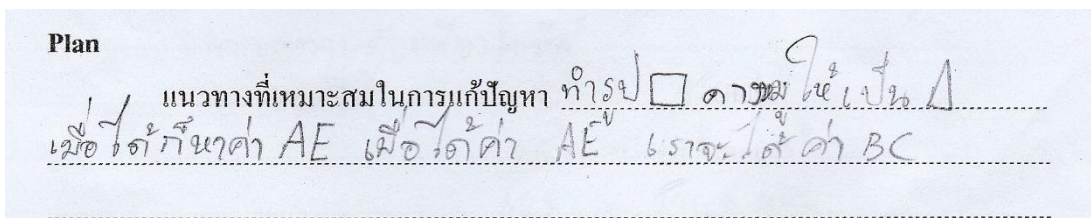 Plan
แนวทางที่เหมาะสมในการแก้ปัญหา ทำรูป □ คางหมูให้เป็น
เมื่อได้ก็หาค่า AE เมื่อได้ค่า AE เราจะได้ค่า BC